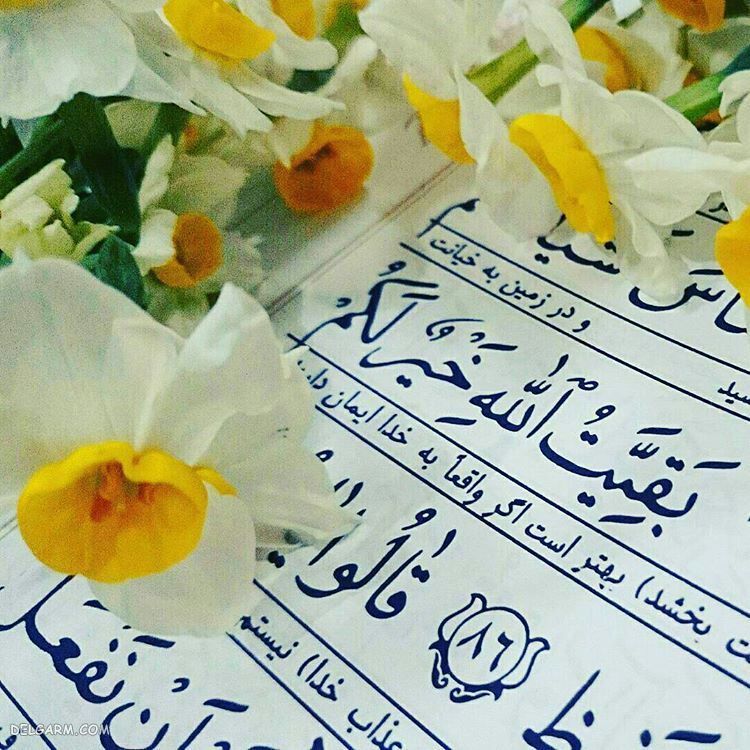 و در زمین به خیانت
بَقِيَّتُ اللّٰهِ خَيْرٌ لَكُمْ
بخشد) بهتر است اگر واقعاً به خدا ایمان
۸۶ قَالُوا
عذاب خدا) نیستم
أَنْ نَفْعَلَ
DELGARM.COM